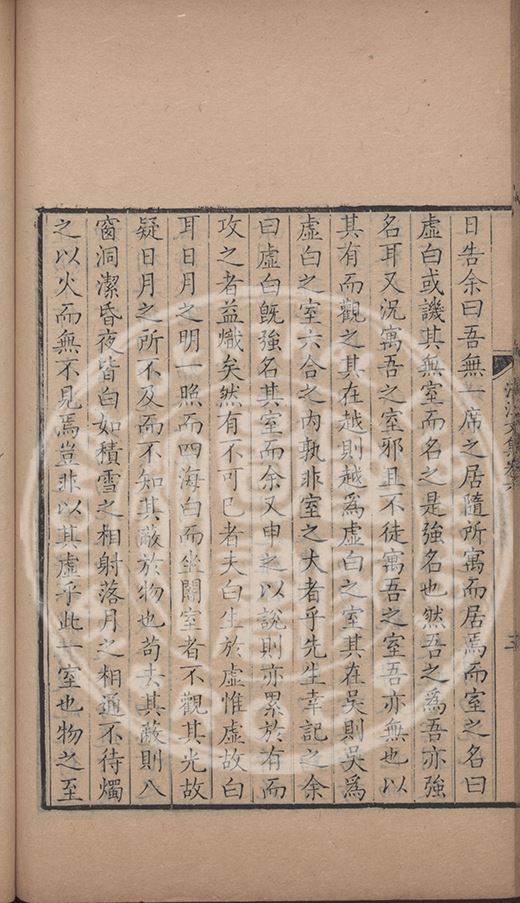 日告余曰吾無一席之居隨所寓而居焉而室之名曰
虛白或譏其無室而名之是強名也然吾之為吾亦強
名耳又況寓吾之室邪且不徒寓吾之室吾亦無也以
其有而觀之其在越則越為虛白之室其在吳則吳為
虛白之室六合之內孰非室之大者乎先生幸記之余
曰虛白既強名其室而余又申之以說則亦累於有而
攻之者益熾矣然有不可已者夫白生於虛惟虛故白
耳日月之明一照而四海白而坐闇室者不觀其光故
疑日月之所不及而不知其蔽於物也苟去其蔽則八
窗洞潔昏夜皆白如積雪之相射落月之相通不待燭
之以火而無不見焉豈非以其虛乎此一室也物之至